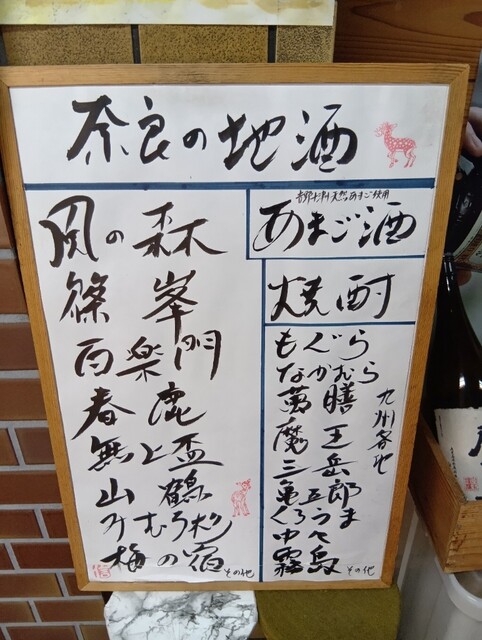 奈良の地酒
風の森
篠峯
百楽門
春鹿
無上盃
山鶴
みむろ杉
梅の宿
その他
あまご酒
焼酎
九州各地
もぐら
なかむら
萬膳
魔王
三岳
亀五郎
くろうま
中々
霧島
その他